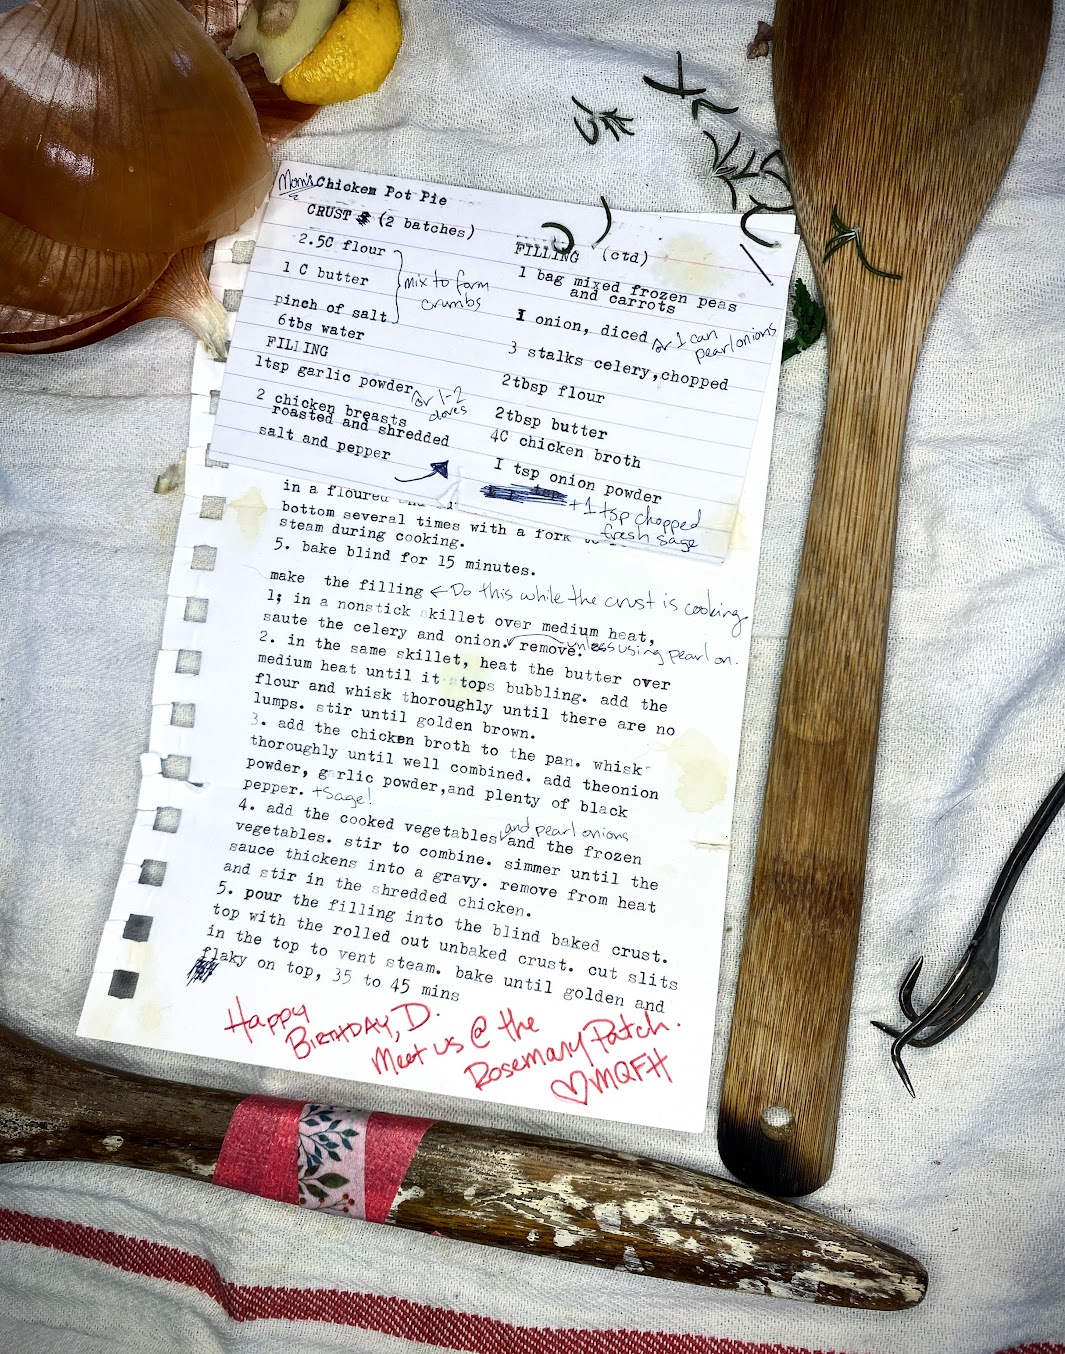 Mom's Chickem Pot Pie
CRUST (2 batches)
2.5C flour
1 C butter
pinch of salt
mix to form
crumbs
6tbs water
FILLING
1tsp garlic powder
or 1-2
cloves
2 chicken breasts
roasted and shredded
salt and pepper
FILLING (ctd)
1 bag mixed frozen peas
and carrots
1 onion, diced
or 1 can
pearl onions
3 stalks celery,chopped
2tbsp flour
2tbsp butter
4C chicken broth
I tsp onion powder
+1 tsp chopped
fresh sage
in a floured
bottom several times with a fork
steam during cooking.
5. bake blind for 15 minutes.
make the filling ← Do this while the crust is cooking
1; in a nonstick skillet over medium heat,
saute the celery and onion. remove. unless using pearl on.
2. in the same skillet, heat the butter over
medium heat until it stops bubbling. add the
flour and whisk thoroughly until there are no
lumps. stir until golden brown.
3. add the chicken broth to the pan. whisk
thoroughly until well combined. add theonion
powder, garlic powder,and plenty of black
pepper. +Sage!
4. add the cooked vegetables and pearl onions and the frozen
vegetables. stir to combine. simmer until the
sauce thickens into a gravy. remove from heat
and stir in the shredded chicken.
5. pour the filling into the blind baked crust.
top with the rolled out unbaked crust. cut slits
in the top to vent steam. bake until golden and
flaky on top, 35 to 45 mins
Happy
BIRTHDAY, D.
Meet us @ the
Rosemary Patch.
♡MQFH